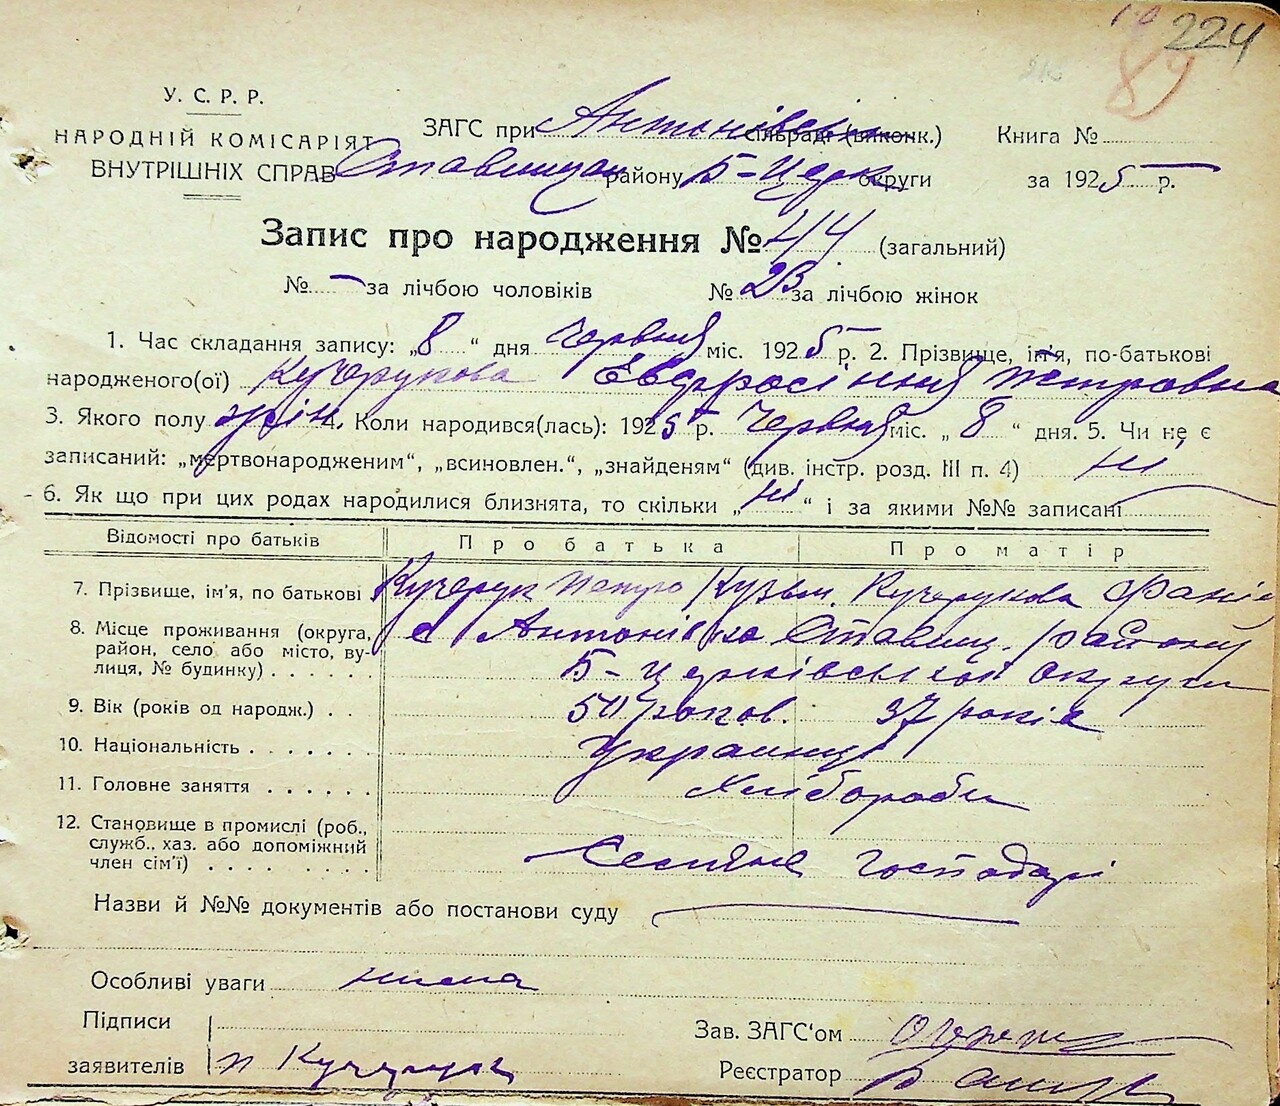 224
89
У. С. Р. Р.
НАРОДНІЙ КОМІСАРІЯТ
ВНУТРІШНІХ СПРАВ
ЗАГС при Антонівськ сільраді (виконк.) Книга №
Ставищан району Б-Церк округи за 1925 р.
Запис про народження № 44 (загальний)
№ — за лічбою чоловіків № 23 за лічбою жінок
1. Час складання запису: „8“ дня Червня міс. 1925 р. 2. Прізвище, ім'я, по-батькові
народженого(ої) Кучерукова Евфросінния Петровна
3. Якого полу жін. 4. Коли народився(лась): 1925 р. Червня міс. „8“ дня. 5. Чи не є
записаний: „мертвонародженим“, „всиновлен.“, „знайденям“ (див. інстр. розд. III п. 4) ні
6. Як що при цих родах народилися близнята, то скільки „ні“ і за якими №№ записані
Відомості про батьків Про батька Про матір
7. Прізвище, ім'я, по батькові Кучерук Петро Кузьм. Кучерукова Фані
8. Місце проживання (округа, район, село або місто, вулиця, № будинку) с Антонівка Ставищ. району
Б-Церківської округи
9. Вік (років од народж.) 50 роков. 37 років
10. Національність Украинці
11. Головне заняття Хлібороби
12. Становище в промислі (роб., служб., хаз. або допоміжний член сім'ї) Селяне господарі
Назви й №№ документів або постанови суду
Особливі уваги нима
Підписи
заявителів п Кучерук
Зав. ЗАГС'ом
Реєстратор